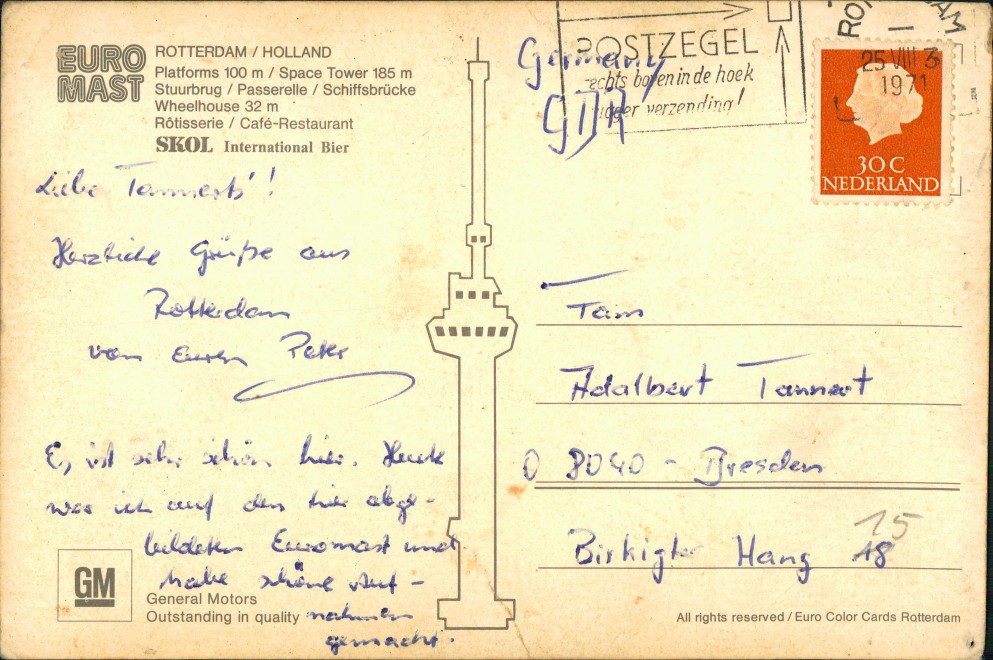 EURO MAST
ROTTERDAM / HOLLAND
Platforms 100 m / Space Tower 185 m
Stuurbrug / Passerelle / Schiffsbrücke
Wheelhouse 32 m
Rôtisserie / Café-Restaurant
SKOL International Bier
Liebe Tannerts'!
Herzliche Grüße aus
Rotterdam
von Eurem Peter
Es ist sehr schön hier. Heute
war ich auf den hier abge-
bildeten Euromast und
habe schöne Auf-
nahmen
gemacht.
GM
General Motors
Outstanding in quality
POSTZEGEL
rechts boven in de hoek
verzending!
25 VIII
1971
30 C
NEDERLAND
Germany
GDR
Fam
Adalbert Tannert
O 8040 - Dresden
Birkigter Hang 18
15
All rights reserved / Euro Color Cards Rotterdam